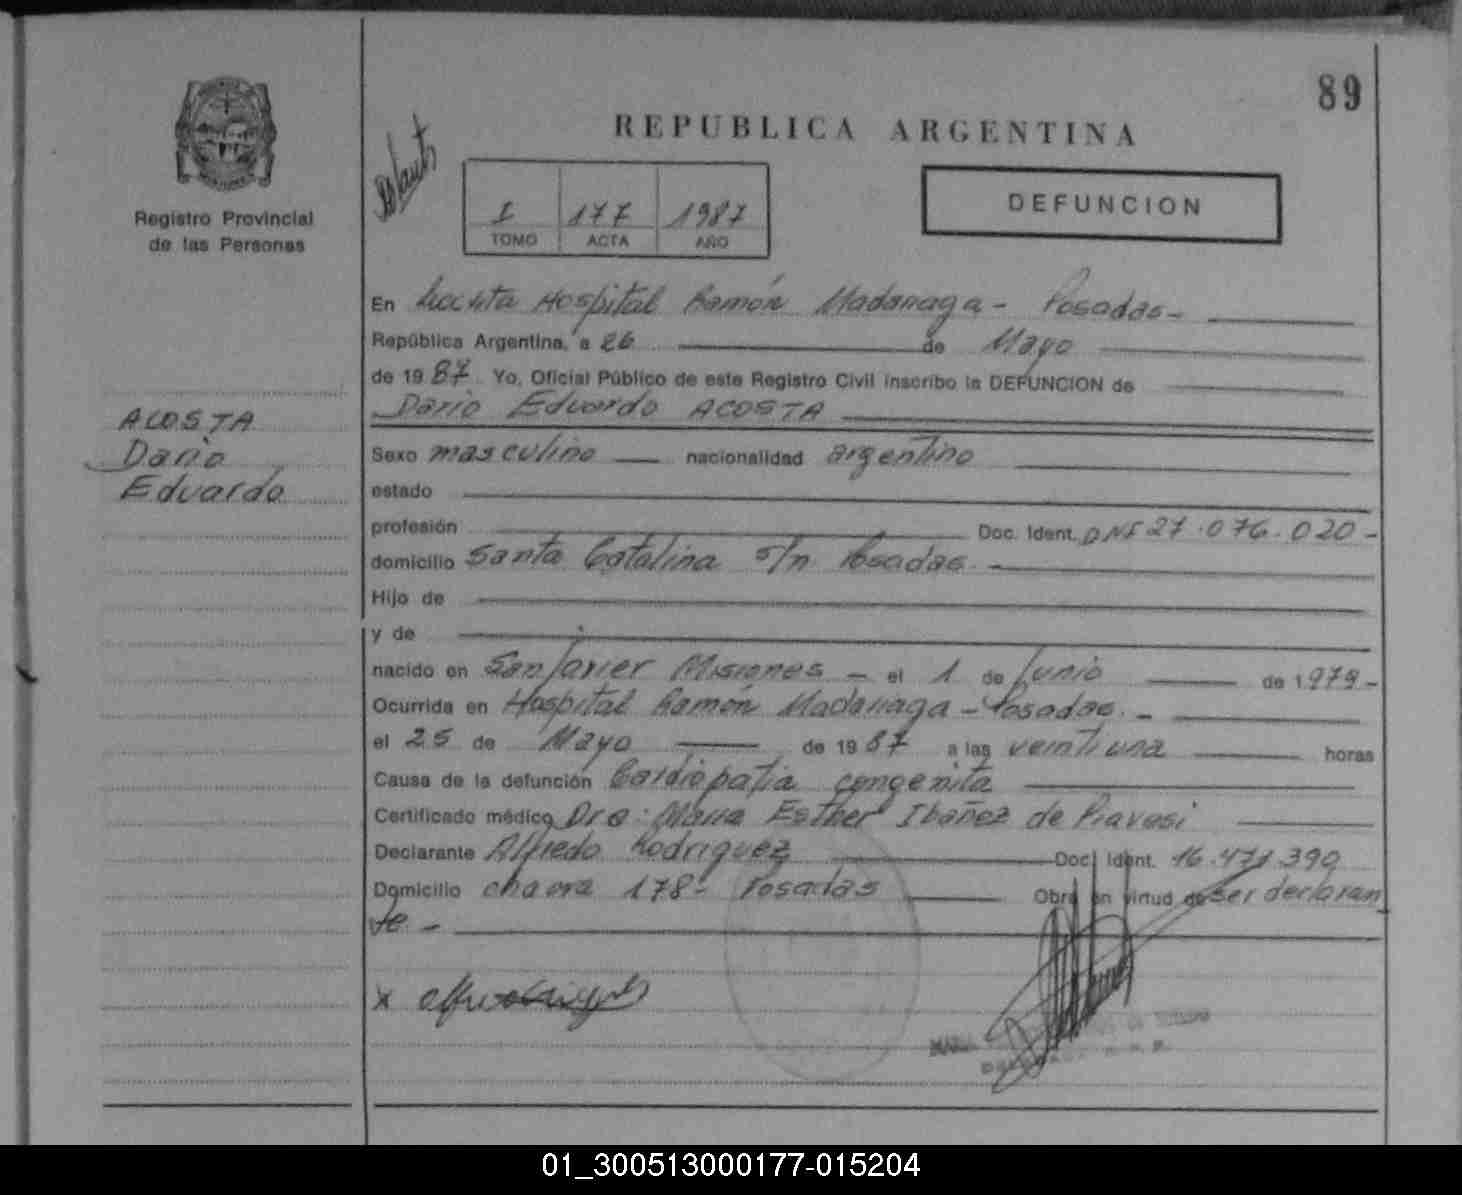 89
REPUBLICA ARGENTINA
Registro Provincial
de las Personas
I 177 1987
TOMO ACTA AÑO
DEFUNCION
En Hospital Ramón Madariaga - Posadas -
República Argentina, a 26 de Mayo
de 1987 Yo, Oficial Público de este Registro Civil inscribo la DEFUNCION de
Dario Eduardo ACOSTA
ACOSTA
Dario
Eduardo
Sexo masculino nacionalidad argentino
estado
profesión Doc. Ident. DNI 27.076.020 -
domicilio Santa Catalina s/n Posadas -
Hijo de
y de
nacido en San Javier Misiones - el 1 de Junio de 1979 -
Ocurrida en Hospital Ramón Madariaga - Posadas. -
el 25 de Mayo de 1987 a las veintiuna horas
Causa de la defunción Cardiopatia congenita
Certificado médico Dra: Maria Esther Ibañez de
Declarante Alfredo Rodriguez Doc. Ident. 16.471.390
Domicilio chacra 178 - Posadas Obra en virtud de ser declaran
te. -
x
01_300513000177-015204